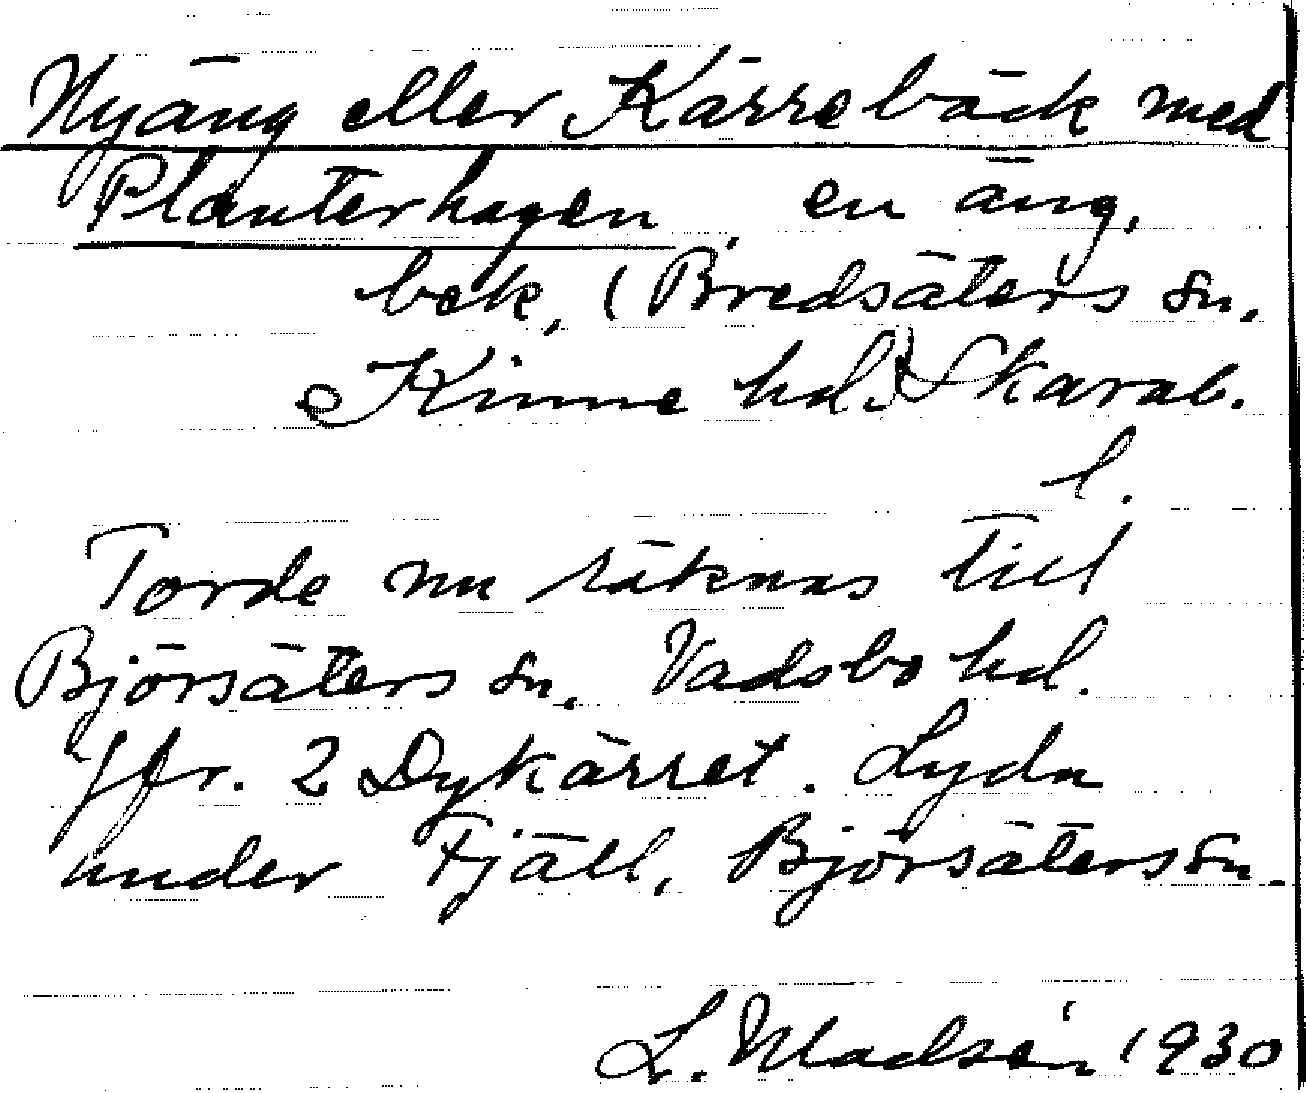 Nyäng eller Kärrebäck med
Planterhagen, en äng,
bek, (Bredsäters sn,
Kinne hd.) Skarab.
l.
Torde nu räknas till
Björsäters sn, Vadsbo hd.
Jfr. 2 Dykärret. Lydn
under Fjäll, Björsäters sn.
L. Madsén 1930